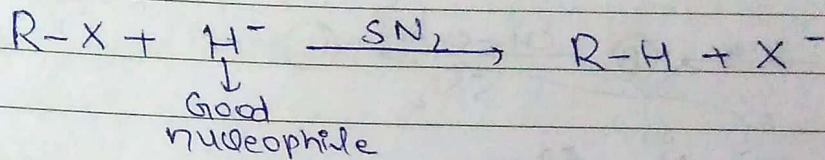 R-X + H⁻ SN₂ → R-H + X⁻
↓
Good
nucleophile